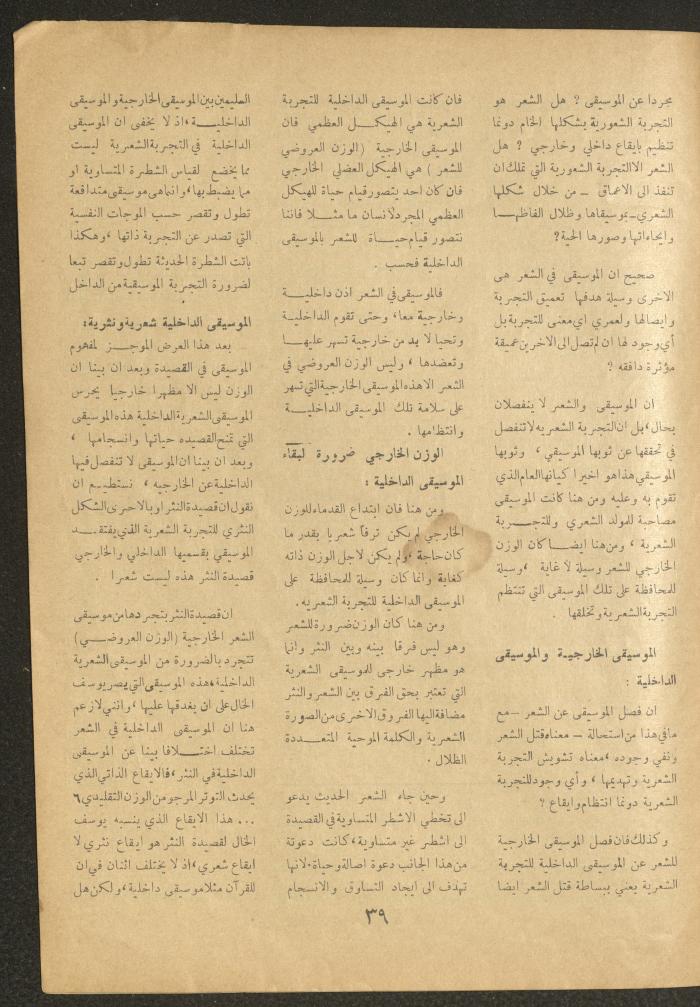 مجردا عن الموسيقى ? هل الشعر هو
التجربة الشعورية بشكلها الخام دونما
تنظيم بايقاع داخلي وخارجي ? هل
الشعر الاالتجربة الشعورية التي تملك ان
تنفذ الى الاعماق – من خلال شكلها
الشعري–بموسيقاها وظلال الفاظهـــا
وايحاءاتها وصورها الحية?
صحيح ان الموسيقى في الشعر هى
الاخرى وسيلة هدفها تعميق التجربة
وايصالها ولعمري اي معنى للتجربة بل
أي وجود لها ان لم تصل الى الاخرين عميقة
مؤثرة دافقه ?
ان الموسيقى والشعر لا ينفصلان
بحال، بل ان التجربة الشعريه لا تنفصل
في تحققها عن ثوبها الموسيقي ، وثوبها
الموسيقي هذا هو اخيرا كيانها العام الذي
تقوم به وعليه ومن هنا كانت الموسيقى
مصاحبة للمولد الشعري وللتجــربة
الشعرية ، ومن هنا ايضــا كان الوزن
الخارجي للشعر وسيلة لا غاية ، وسيلة
للمحافظة على تلك الموسيقى التي تنتظم
التجربة الشعرية وتخلقها .
الموسيقى الخارجيـة والموسيقى
الداخلية :
ان فصل الموسيقى عن الشعر –مع
ما في هذا من استحالة – معناه قتل الشعر
ونفي وجوده ، معناه تشويش التجربة
الشعرية وتهديمها ، وأي وجود للتجربة
الشعرية دونما انتظام وايقاع ?
وكذلك فان فصل الموسيقى الخارجية
للشعر عن الموسيقى الداخلية للتجربة
الشعرية يعني ببساطة قتل الشعر ايضا
فان كانت الموسيقى الداخلية للتجربة
الشعرية هي الهيكـــل العظمي فان
الموسيقى الخارجية (الوزن العروضي
للشعر ) هي الهيكل العضلي الخارجي
فان كان احد يتصور قيام حياة للهيكل
العظمي المجرد لانسان ما مثـــلا فاننا
نتصور قيام حيـــاة للشعر بالموسيقى
الداخلية فحسب .
فالموسيقى في الشعر اذن داخليـــة
وخارجية معا، وحتى تقوم الداخليـة
وتحيا لا بد من خارجية تسهر عليهــا
وتعضدها ، وليس الوزن العروضي في
الشعر الا هذه الموسيقى الخارجية التي تسهر
على سلامة تلك الموسيقى الداخليـــة
وانتظامها .
الوزن الخارجي ضرورة لبقاء
الموسيقى الداخلية :
ومن هنا فان ابتداع القدماء للوزن
الخارجي لم يكن ترفا شعريا بقدر ما
كان حاجة ، ولم يكن لاجل الوزن ذاته
كغاية وانما كان وسيلة للمحافظة على
الموسيقى الداخلية للتجربة الشعريه .
ومن هنا كان الوزن ضرورة للشعر
وهو ليس فرقا بينه وبين النثر وانما
هو مظهر خارجي للموسيقى الشعرية
التي تعتبر بحق الفرق بين الشعر والنثر
مضافة اليها الفروق الاخرى من الصورة
الشعرية والكلمة الموحية المتعــددة
الظلال .
وحين جاء الشعر الحديث يدعو
الى تخطي الاشطر المتساوية في القصيدة
الى اشطر غير متساوية ، كانت دعوته
من هذا الجانب دعوة اصالة وحياة. لانها
تهدف الى ايجاد التساوق والانسجام
السليمين بين الموسيقى الخارجية والموسيقى
الداخليـــة ، اذ لا يخفى ان الموسيقى
الداخلية في التجربة الشعرية ليست
مما يخضع لقياس الشطرة المتساوية او
مما يضبط بها ، وانما هي موسيقى متدافعة
تطول وتقصر حسب الموجات النفسية
التي تصدر عن التجربة ذاتها ، وهكذا
باتت الشطرة الحديثة تطول وتقصر تبعا
لضرورة التجربة الموسيقية من الداخل
الموسيقى الداخلية شعرية ونثرية:
بعد هذا العرض الموجــز لمفهوم
الموسيقى في القصيدة وبعد ان بينا ان
الوزن ليس الا مظهرا خارجيا يحرس
الموسيقى الشعرية الداخلية هذه الموسيقى
التي تمنح القصيده حياتها وانسجامها ،
وبعد ان بينا ان الموسيقى لا تنفصل فيها
الداخلية عن الخارجيه ، نستطيــع ان
نقول ان قصيدة النثر او بالاحرى الشكل
النثري للتجربة الشعرية الذي يفتقــد
الموسيقى بقسميها الداخلي والخارجي
قصيدة النثر هذه ليست شعرا .
ان قصيدة النثر بتجردها من موسيقى
الشعر الخارجية (الوزن العروضـــي)
تتجرد بالضرورة من الموسيقى الشعرية
الداخلية ، هذه الموسيقى التي يصر يوسف
الخال على ان يغدقها عليها ، وانني لازعم
هنا ان الموسيقى الداخلية في الشعر
تختلف اختــلافا بينا عن الموسيقى
الداخلية في النثر ، فالايقاع الذاتي الذي
يحدث التوتر المرجو من الوزن التقليدي ٦
... هذا الايقاع الذي ينسبه يوسف
الخال لقصيدة النثر هو ايقاع نثري لا
ايقاع شعري ، اذ لا يختلف اثنان في ان
للقرآن مثلا موسيقى داخلية ، ولكن هل
٣٩